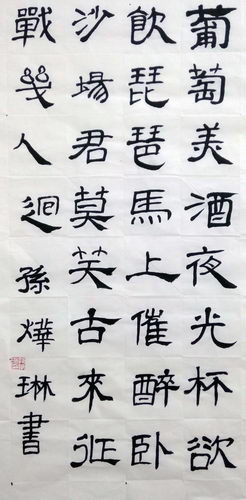 葡萄美酒夜光杯欲
飲琵琶馬上催醉卧
沙場君莫笑古來征
戰幾人迴孫燁琳書